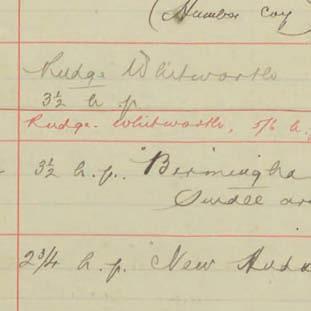 (Number
Rudge Whitworth
3½ h.p.
Rudge-Whitworth, 5/6 h.
3½ h.p. "Bermingha
2¾ h.p. New Huds